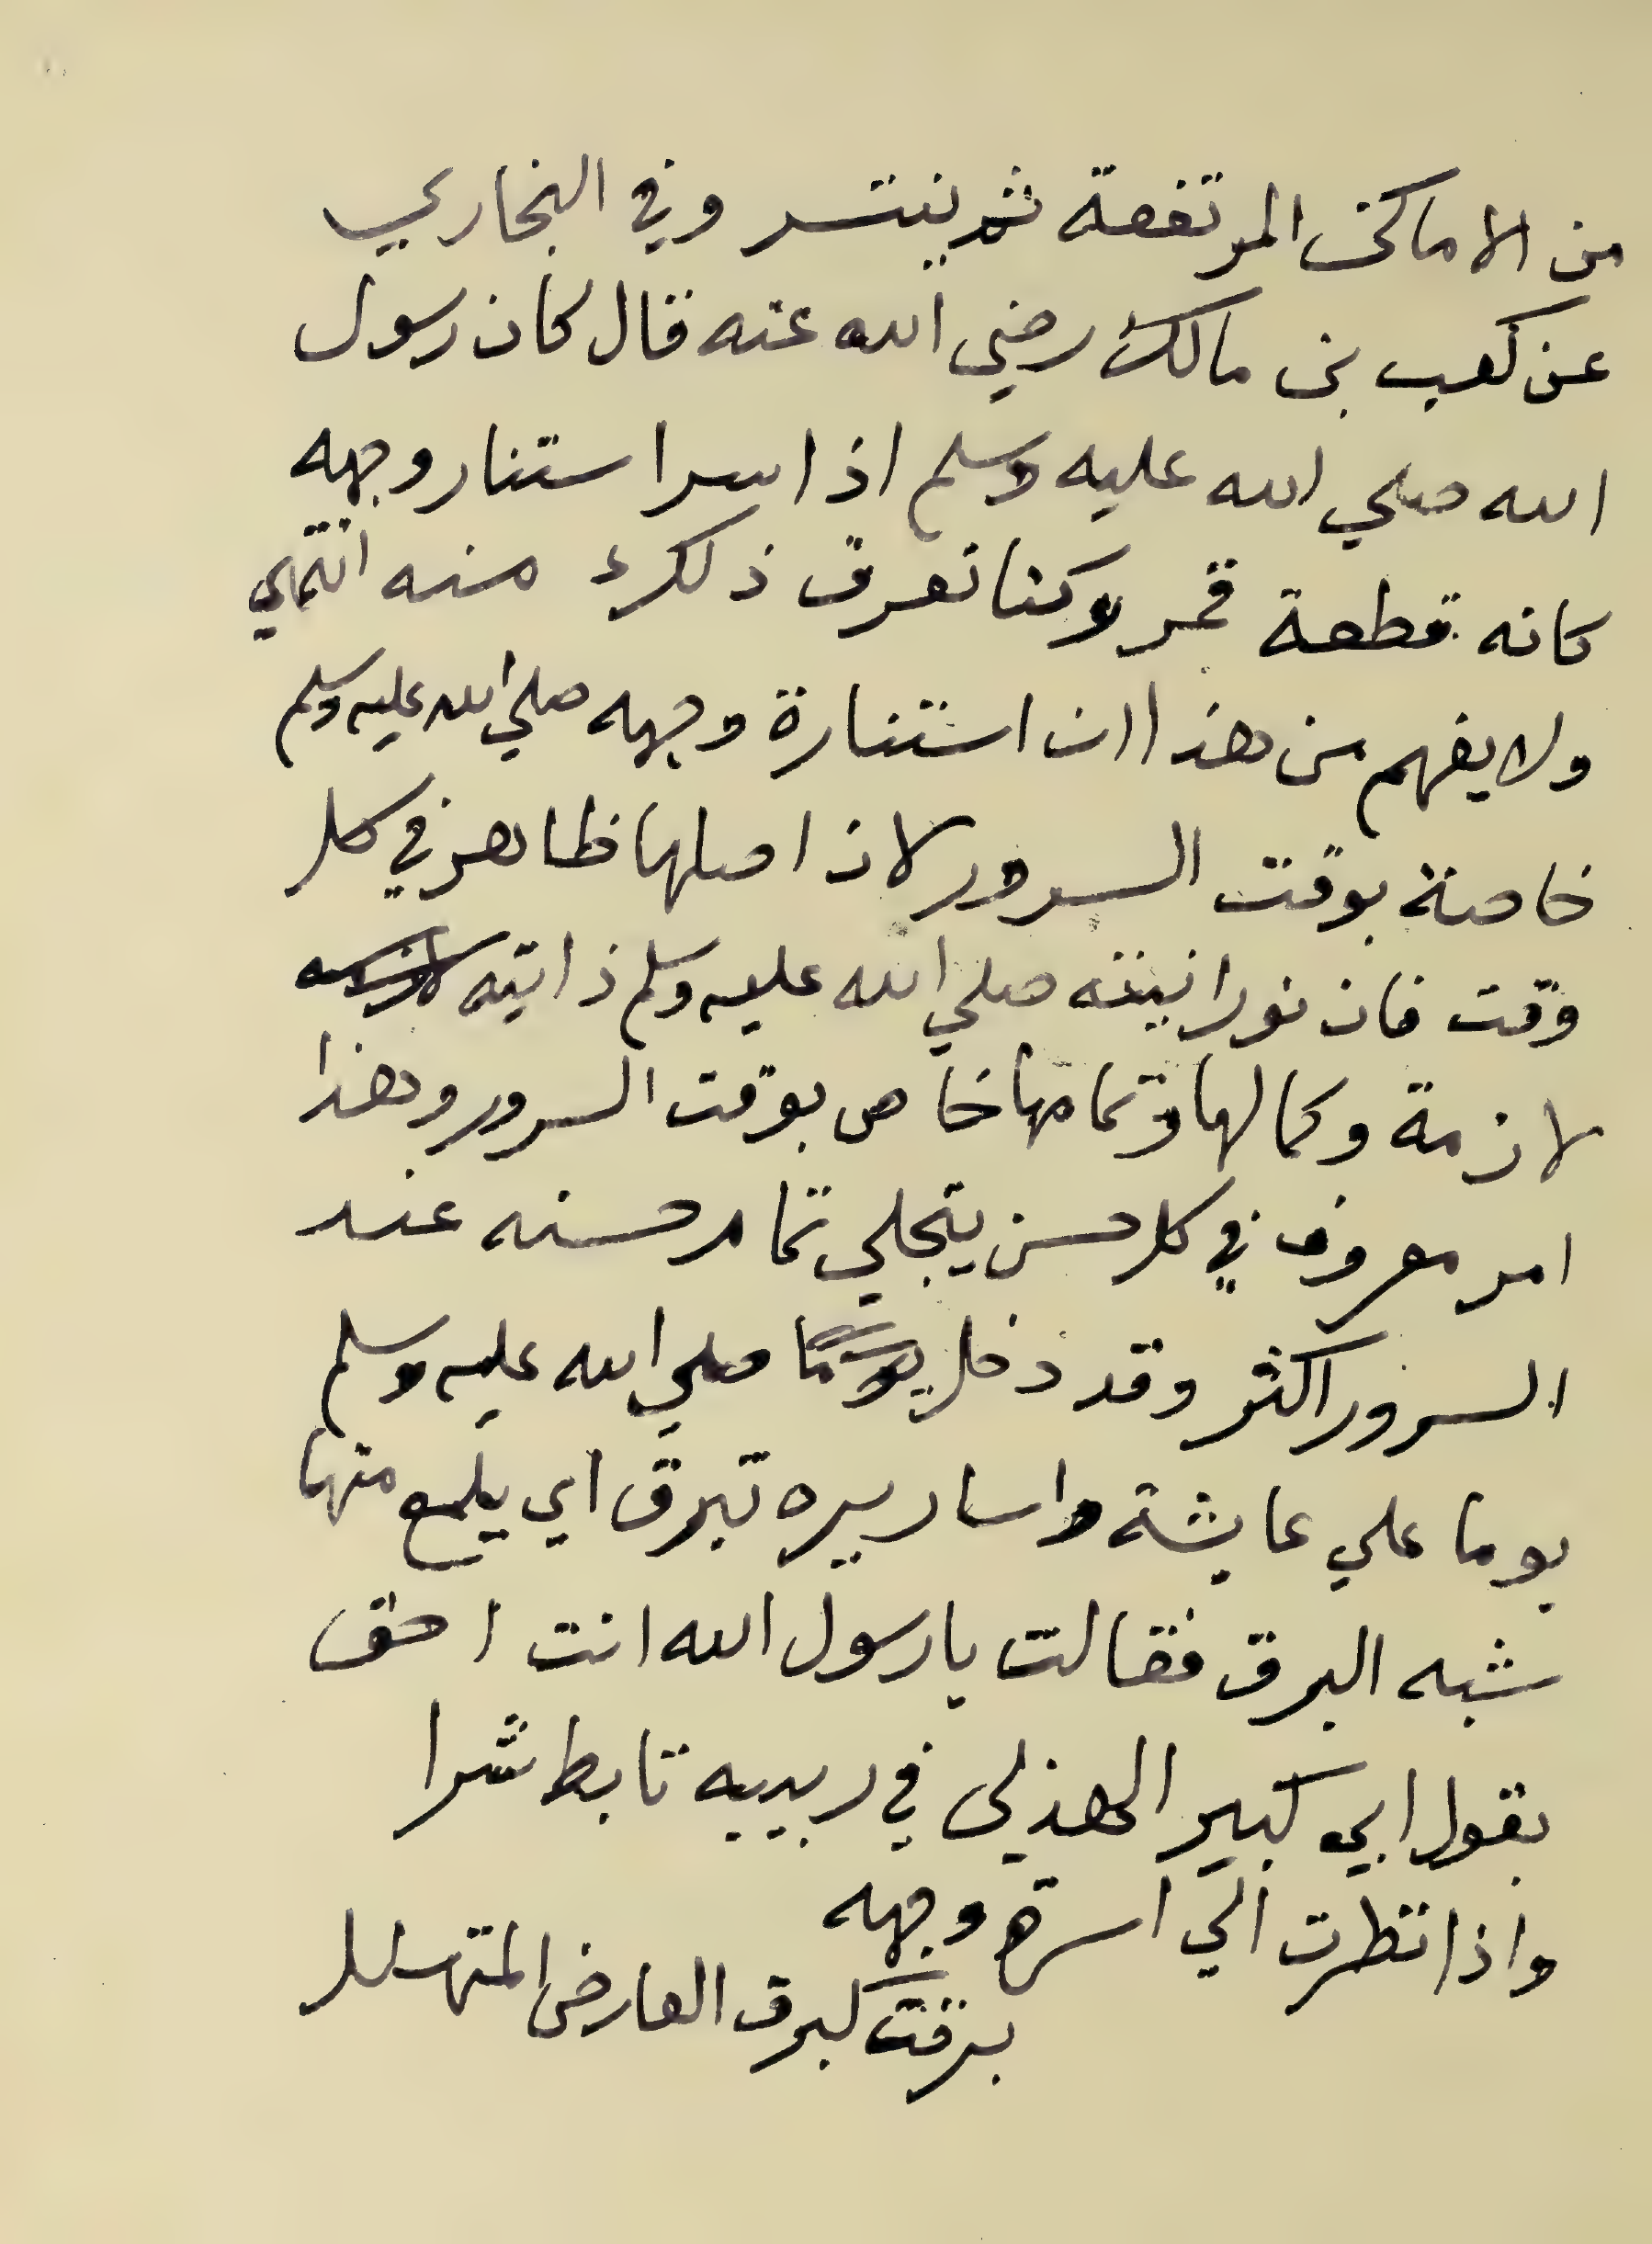 من الاماكن المرتفعة ثم ينتشر وفي البخاري
عن كعب بن مالك رضي الله عنه قال كان رسول
الله صلي الله عليه وسلم اذا سر استنار وجهه
كانه قطعة قمر وكنا نعرف ذلك منه انتهي
ولا يفهم من هذا ان استنارة وجهه صلي الله عليه وسلم
خاصة بوقت السرور لان اصلها ظاهر في كل
وقت فان نورانيته صلي الله عليه وسلم ذاتيه
لازمة وكمالها وتمامها خاص بوقت السرور وهذا
امر معروف في كل حسن يتجلي تمام حسنه عند
السرور اكثر وقد دخل يوما صلي الله عليه وسلم
يوما علي عايشة واساريره تبرق اي يلمع منها
شبه البرق فقالت يارسول الله انت احق
بقول ابي كبير الهذلي في ربيبه تابط شرا
واذا نظرت الي اسرة وجهه
برقت كبرق العارض المتهلل